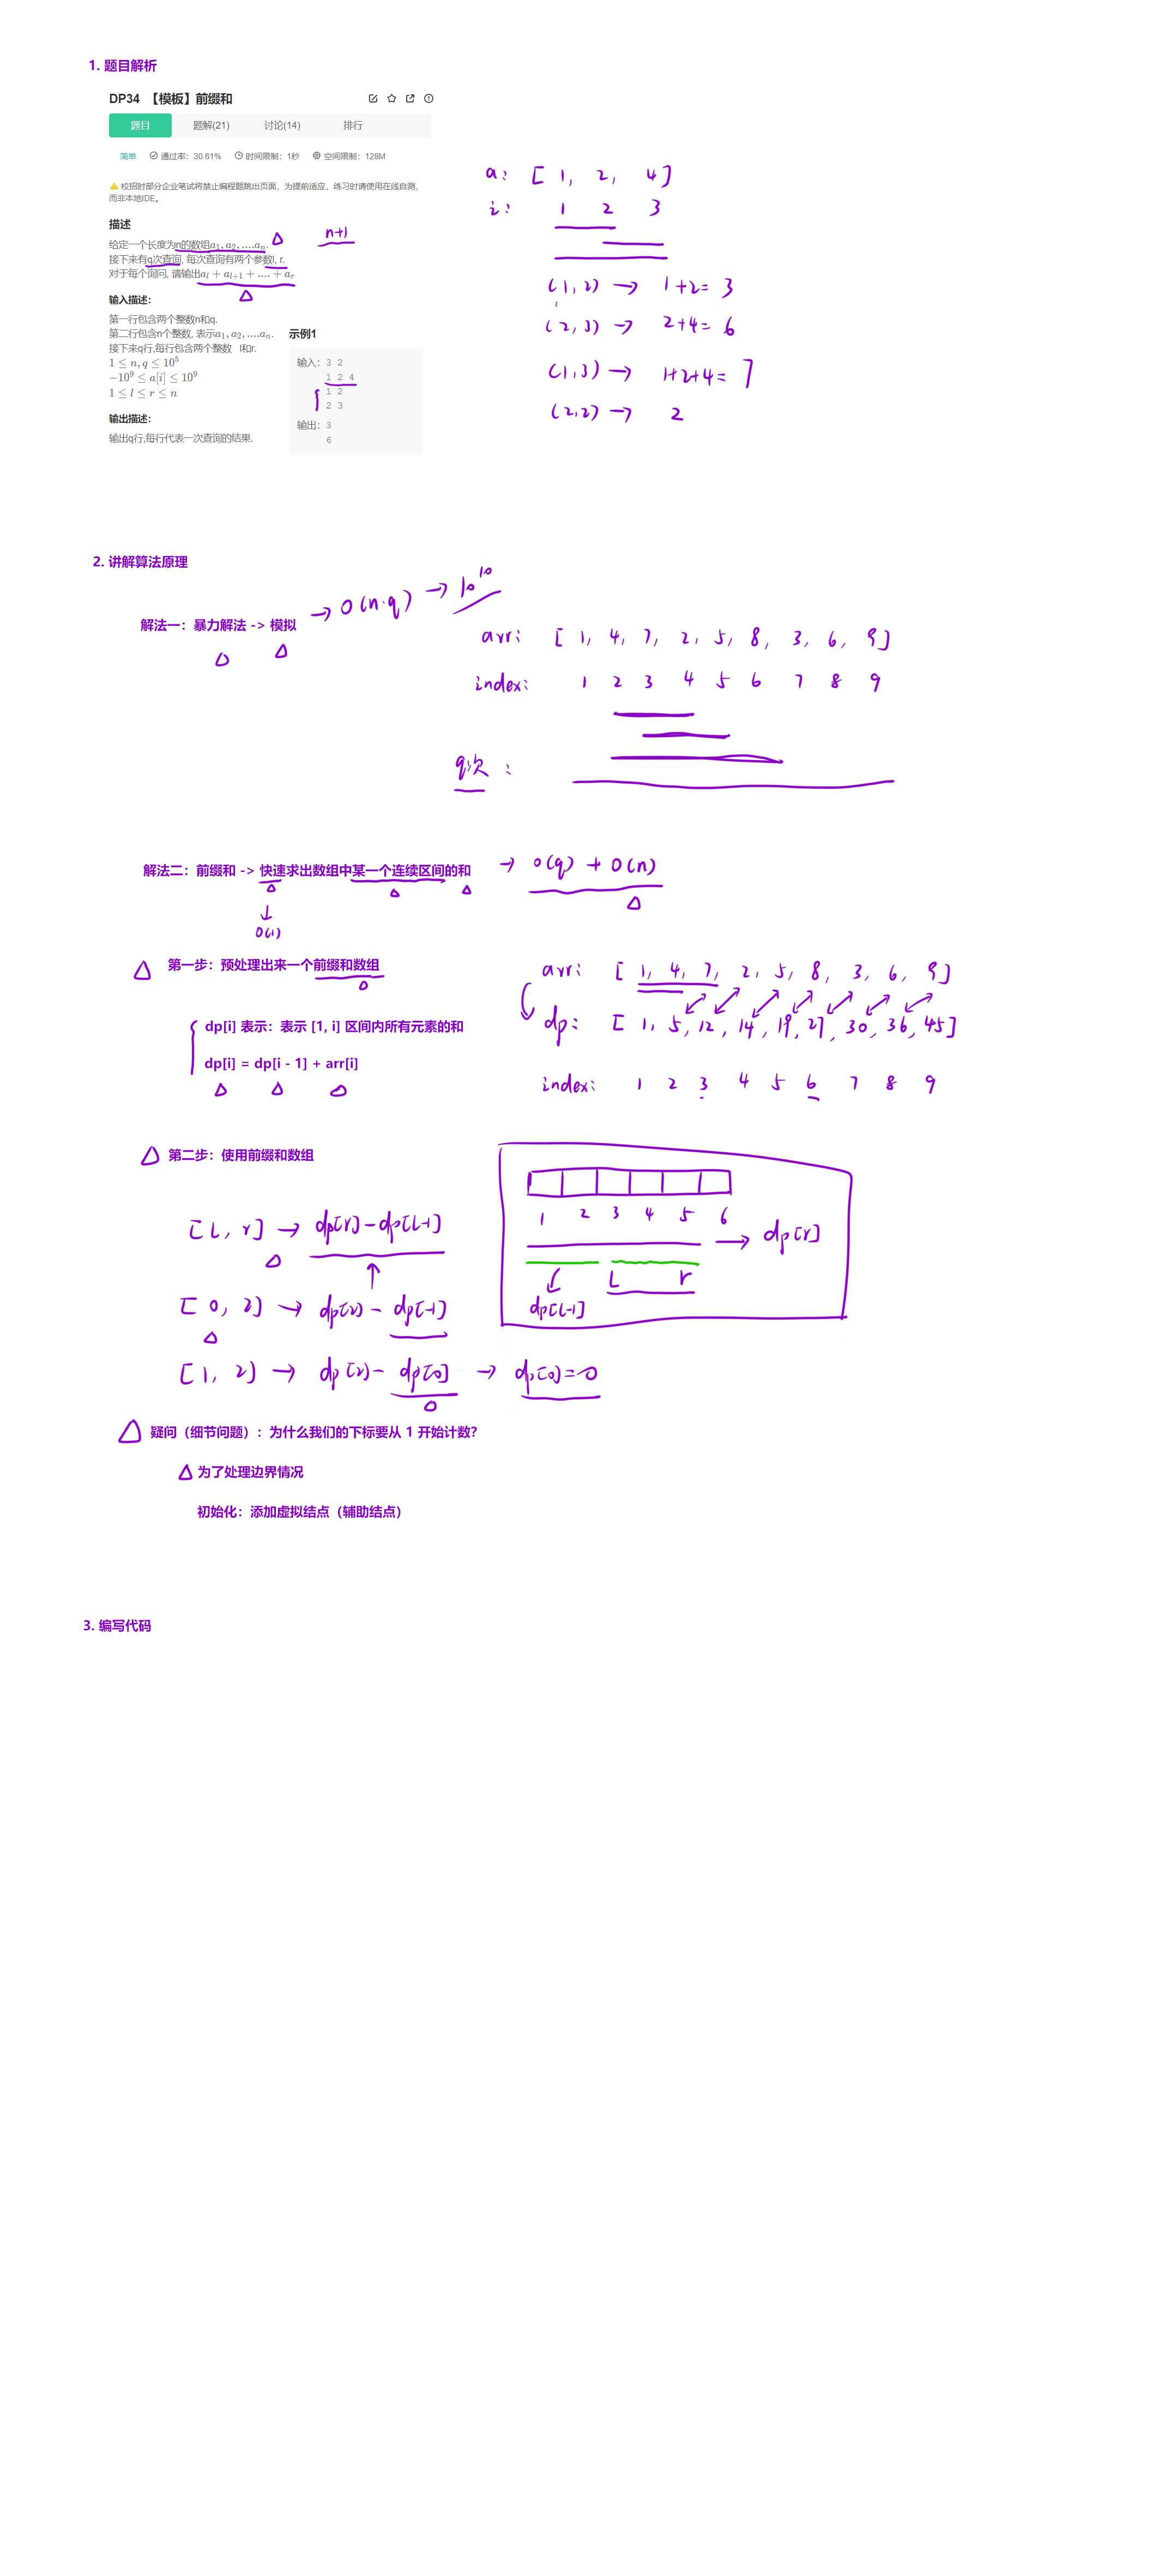 1. 题目解析
DP34 【模板】前缀和
题目 题解(21) 讨论(14) 排行
简单 通过率：30.61% 时间限制：1秒 空间限制：128M
校招时部分企业笔试将禁止编程题跳出页面，为提前适应，练习时请使用在线自测，
而非本地IDE。
描述
给定一个长度为n的数组a₁, a₂, ....aₙ.
n+1
接下来有q次查询, 每次查询有两个参数l, r.
对于每个询问, 请输出aₗ + aₗ₊₁ + .... + aᵣ
输入描述：
第一行包含两个整数n和q.
第二行包含n个整数, 表示a₁, a₂, ....aₙ.
接下来q行,每行包含两个整数 l和r.
1 ≤ n, q ≤ 10⁵
−10⁹ ≤ a[i] ≤ 10⁹
1 ≤ l ≤ r ≤ n
输出描述：
输出q行,每行代表一次查询的结果.
示例1
输入：3 2
1 2 4
1 2
2 3
输出：3
6
a: [ 1, 2, 4 ]
i: 1 2 3
(1,2) → 1+2= 3
(2,3) → 2+4= 6
(1,3) → 1+2+4= 7
(2,2) → 2
2. 讲解算法原理
解法一：暴力解法 -> 模拟 → O(n·q) → 10¹⁰
arr: [ 1, 4, 7, 2, 5, 8, 3, 6, 9 ]
index: 1 2 3 4 5 6 7 8 9
q次 :
解法二：前缀和 -> 快速求出数组中某一个连续区间的和 → O(q) + O(n)
↓
O(1)
第一步：预处理出来一个前缀和数组
dp[i] 表示：表示 [1, i] 区间内所有元素的和
dp[i] = dp[i - 1] + arr[i]
arr: [ 1, 4, 7, 2, 5, 8, 3, 6, 9 ]
dp: [ 1, 5, 12, 14, 19, 27, 30, 36, 45 ]
index: 1 2 3 4 5 6 7 8 9
第二步：使用前缀和数组
[l, r] → dp[r] - dp[l-1]
[0, 2] → dp[2] - dp[-1]
[1, 2] → dp[2] - dp[0] → dp[0]=0
1 2 3 4 5 6
→ dp[r]
L r
dp[l-1]
疑问（细节问题）：为什么我们的下标要从 1 开始计数？
为了处理边界情况
初始化：添加虚拟结点（辅助结点）
3. 编写代码